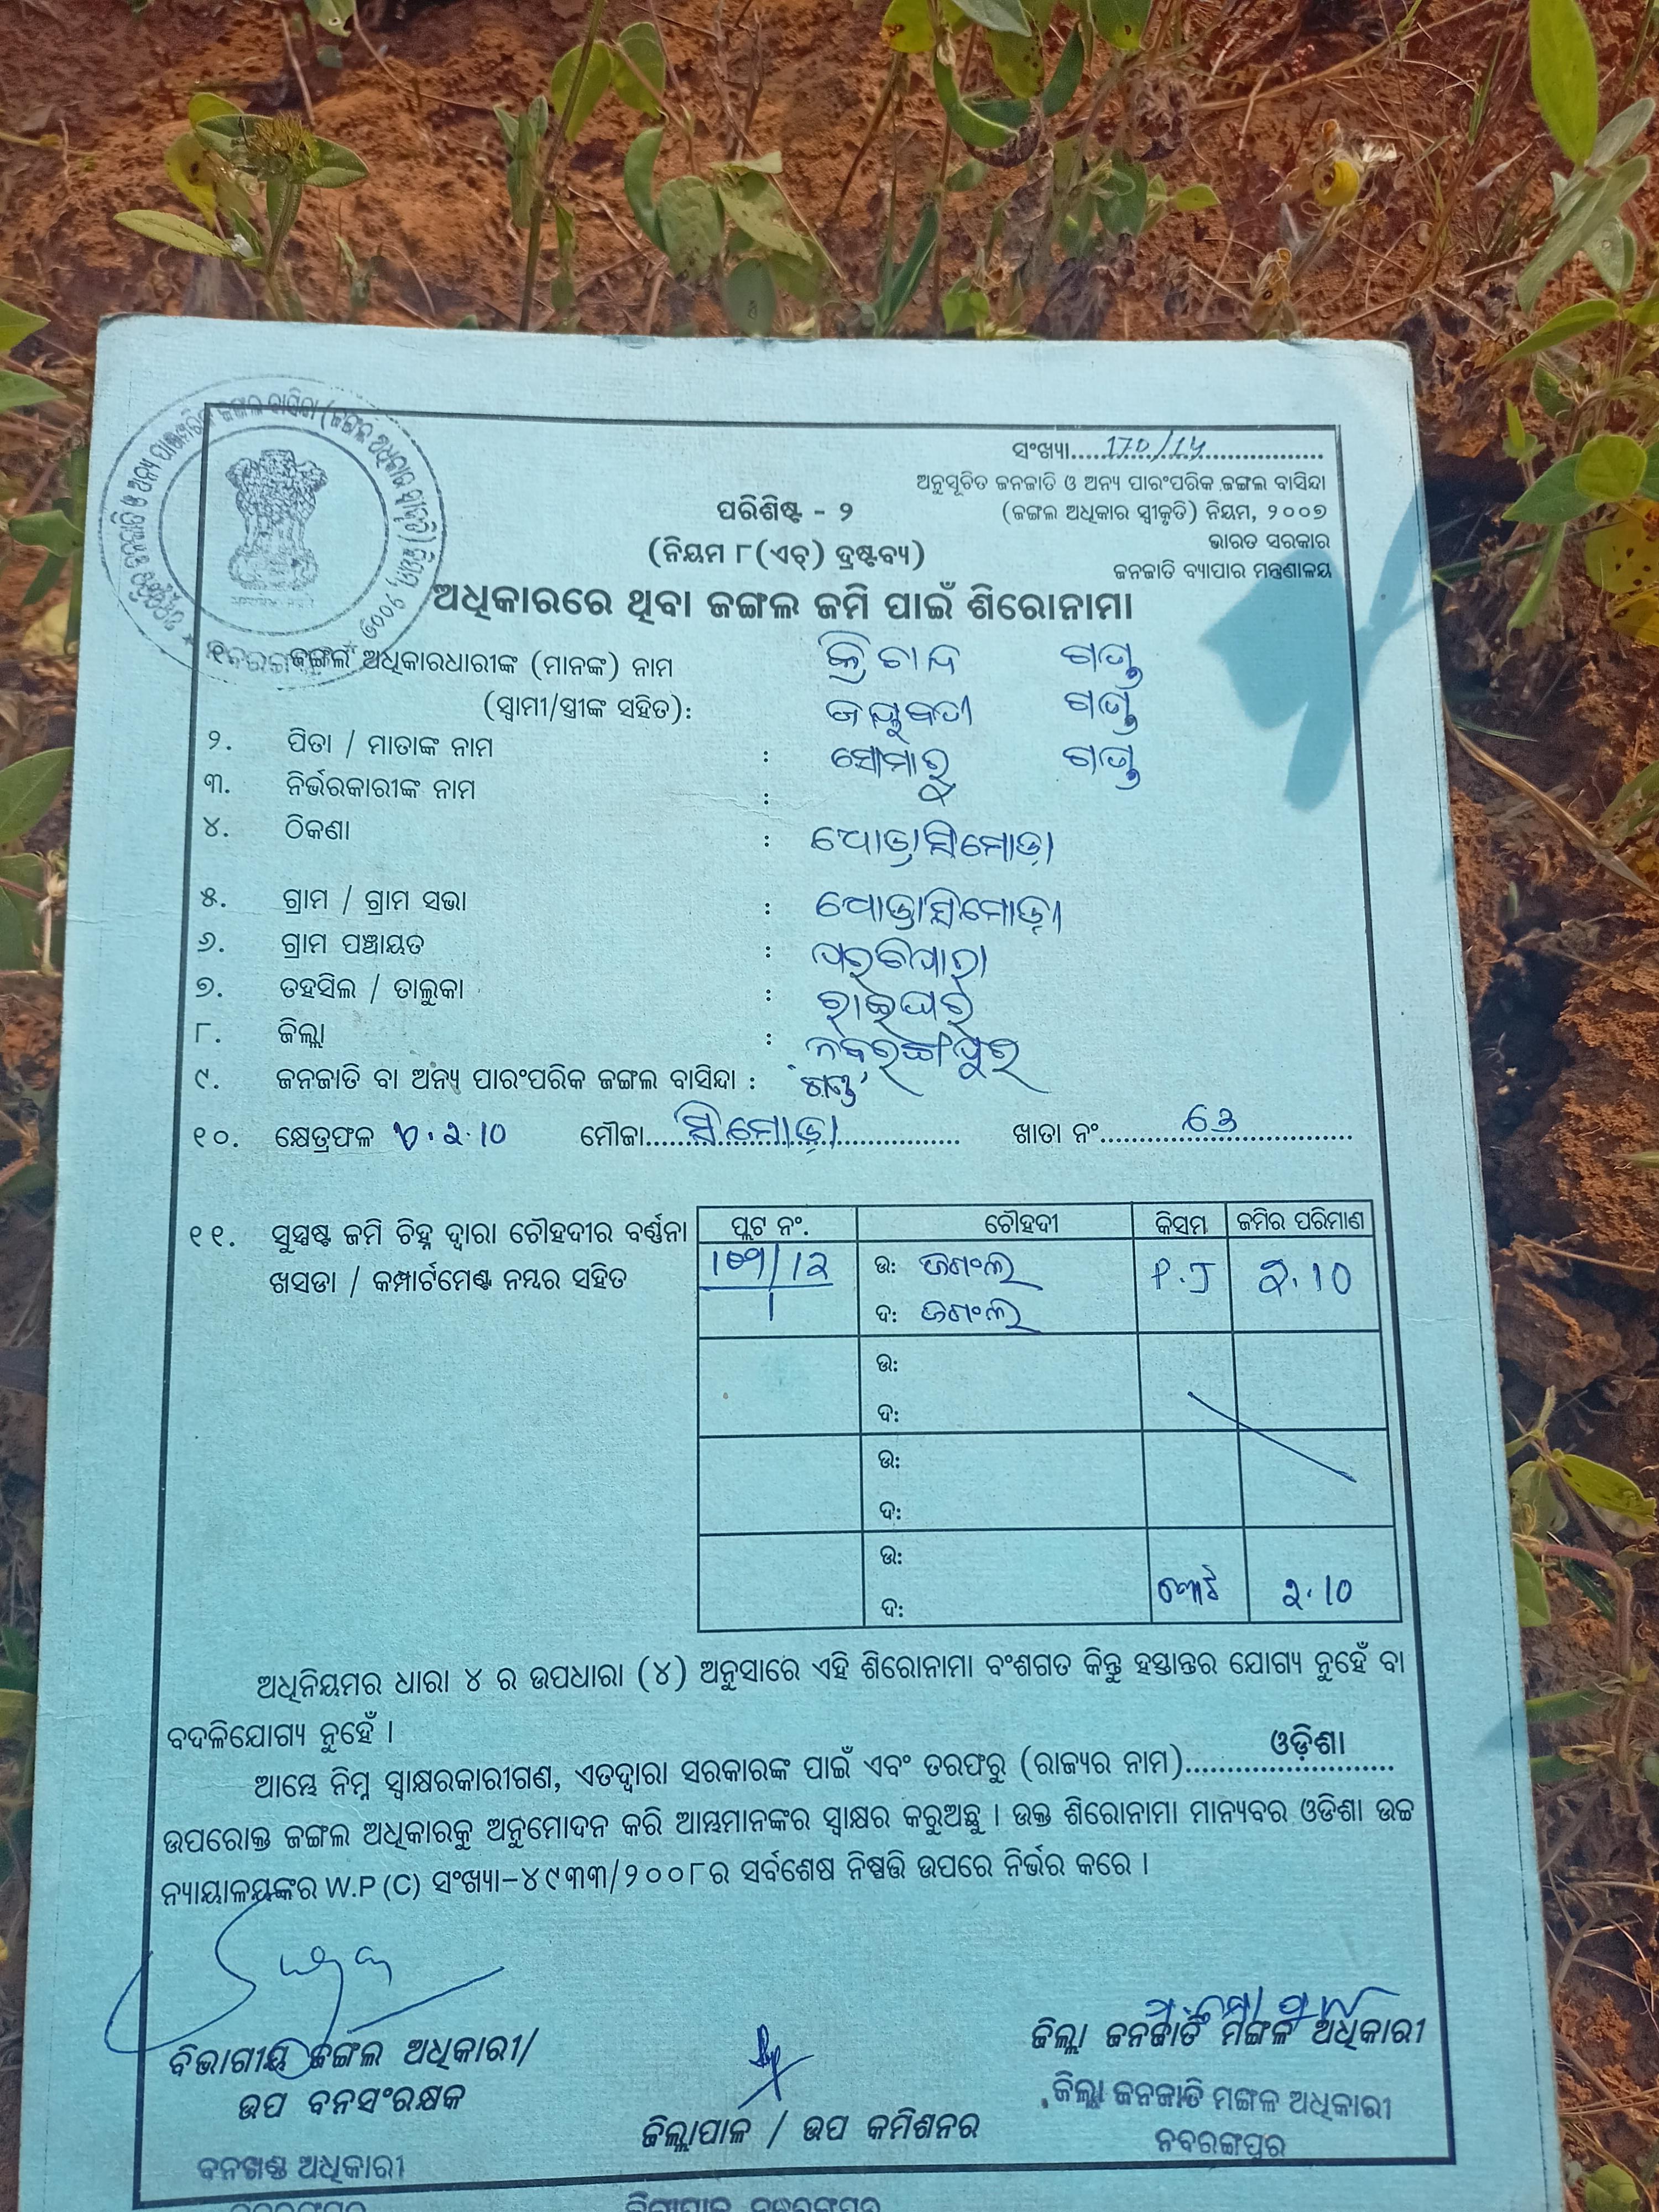 ଅନୁସୂଚିତ ଜନଜାତି ଓ ଅନ୍ୟ ପାରଂପରିକ ଜଙ୍ଗଲ ବାସିନ୍ଦା (ଜଙ୍ଗଲ ଅଧିକାର ସ୍ୱୀକୃତି) ନିୟମ, ୨୦୦୭
ସଂଖ୍ୟା.....170/14.....
ଅନୁସୂଚିତ ଜନଜାତି ଓ ଅନ୍ୟ ପାରଂପରିକ ଜଙ୍ଗଲ ବାସିନ୍ଦା
(ଜଙ୍ଗଲ ଅଧିକାର ସ୍ୱୀକୃତି) ନିୟମ, ୨୦୦୭
ଭାରତ ସରକାର
ଜନଜାତି ବ୍ୟାପାର ମନ୍ତ୍ରଣାଳୟ
ପରିଶିଷ୍ଟ - ୨
(ନିୟମ ୮(ଏଚ୍) ଦ୍ରଷ୍ଟବ୍ୟ)
ଅଧିକାରରେ ଥିବା ଜଙ୍ଗଲ ଜମି ପାଇଁ ଶିରୋନାମା
୧. ଜଙ୍ଗଲ ଅଧିକାରଧାରୀଙ୍କ (ମାନଙ୍କ) ନାମ
(ସ୍ୱାମୀ/ସ୍ତ୍ରୀଙ୍କ ସହିତ):
୨. ପିତା / ମାତାଙ୍କ ନାମ : ସୋମାରୁ
୩. ନିର୍ଭରକାରୀଙ୍କ ନାମ :
୪. ଠିକଣା :
୫. ଗ୍ରାମ / ଗ୍ରାମ ସଭା :
୬. ଗ୍ରାମ ପଞ୍ଚାୟତ :
୭. ତହସିଲ / ତାଲୁକା : ରାଇଘର
୮. ଜିଲ୍ଲା : ନବରଙ୍ଗପୁର
୯. ଜନଜାତି ବା ଅନ୍ୟ ପାରଂପରିକ ଜଙ୍ଗଲ ବାସିନ୍ଦା : 'ଗଣ୍ଡ'
୧୦. କ୍ଷେତ୍ରଫଳ ମୌଜା..... ଖାତା ନଂ.....63.....
୧୧. ସୁସ୍ପଷ୍ଟ ଜମି ଚିହ୍ନ ଦ୍ୱାରା ଚୌହଦୀର ବର୍ଣ୍ଣନା
ଖସଡା / କମ୍ପାର୍ଟମେଣ୍ଟ ନମ୍ବର ସହିତ
ପ୍ଲଟ ନଂ. ଚୌହଦୀ କିସମ ଜମିର ପରିମାଣ
ଉ: ଜଗଂଲ P.J ୨.10
ଦ: ଜଗଂଲ
ଉ:
ଦ:
ଉ:
ଦ:
ଉ:
ଦ: ମୋଟ ୨.10
ଅଧିନିୟମର ଧାରା ୪ ର ଉପଧାରା (୪) ଅନୁସାରେ ଏହି ଶିରୋନାମା ବଂଶଗତ କିନ୍ତୁ ହସ୍ତାନ୍ତର ଯୋଗ୍ୟ ନୁହେଁ ବା
ବଦଳିଯୋଗ୍ୟ ନୁହେଁ ।
ଆମ୍ଭେ ନିମ୍ନ ସ୍ୱାକ୍ଷରକାରୀଗଣ, ଏତଦ୍ୱାରା ସରକାରଙ୍କ ପାଇଁ ଏବଂ ତରଫରୁ (ରାଜ୍ୟର ନାମ).....ଓଡ଼ିଶା.....
ଉପରୋକ୍ତ ଜଙ୍ଗଲ ଅଧିକାରକୁ ଅନୁମୋଦନ କରି ଆମ୍ଭମାନଙ୍କର ସ୍ୱାକ୍ଷର କରୁଅଛୁ । ଉକ୍ତ ଶିରୋନାମା ମାନ୍ୟବର ଓଡିଶା ଉଚ୍ଚ
ନ୍ୟାୟାଳୟଙ୍କର W.P (C) ସଂଖ୍ୟା-୪୯୩୩/୨୦୦୮ର ସର୍ବଶେଷ ନିଷ୍ପତ୍ତି ଉପରେ ନିର୍ଭର କରେ ।
ବିଭାଗୀୟ ଜଙ୍ଗଲ ଅଧିକାରୀ/
ଉପ ବନସଂରକ୍ଷକ
ବନଖଣ୍ଡ ଅଧିକାରୀ
ନବରଙ୍ଗପୁର
ଜିଲ୍ଲାପାଳ / ଉପ କମିଶନର
ଜିଲ୍ଲାପାଳ ନବରଙ୍ଗପୁର
ଜିଲ୍ଲା ଜନଜାତି ମଙ୍ଗଳ ଅଧିକାରୀ
ଜିଲ୍ଲା ଜନଜାତି ମଙ୍ଗଳ ଅଧିକାରୀ
ନବରଙ୍ଗପୁର